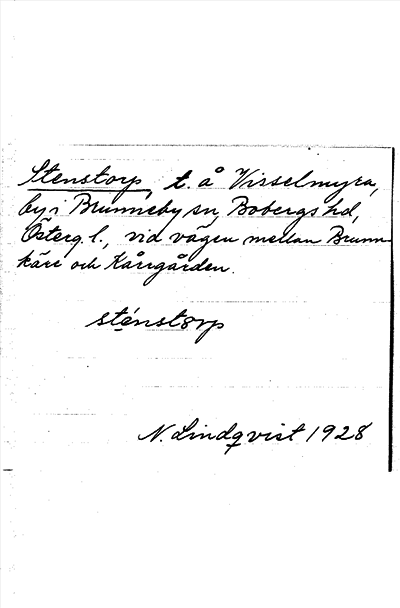 Stenstorp, t. å Visselmyra,
by i Brunneby sn, Bobergs hd,
Österg. l., vid vägen mellan Brunn-
kärr och Kärrgården.
sténstorp
N. Lindqvist 1928